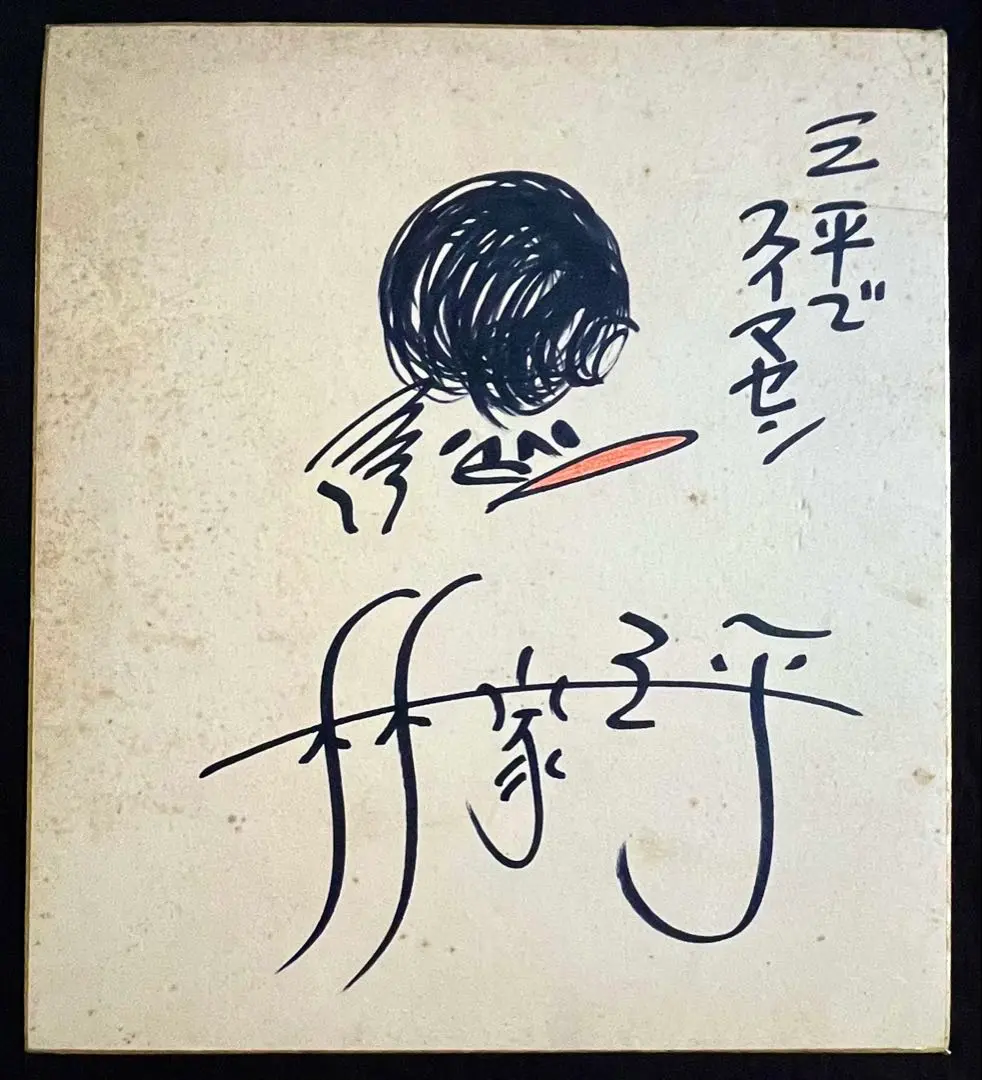 三平で
スイマセン
林家三平